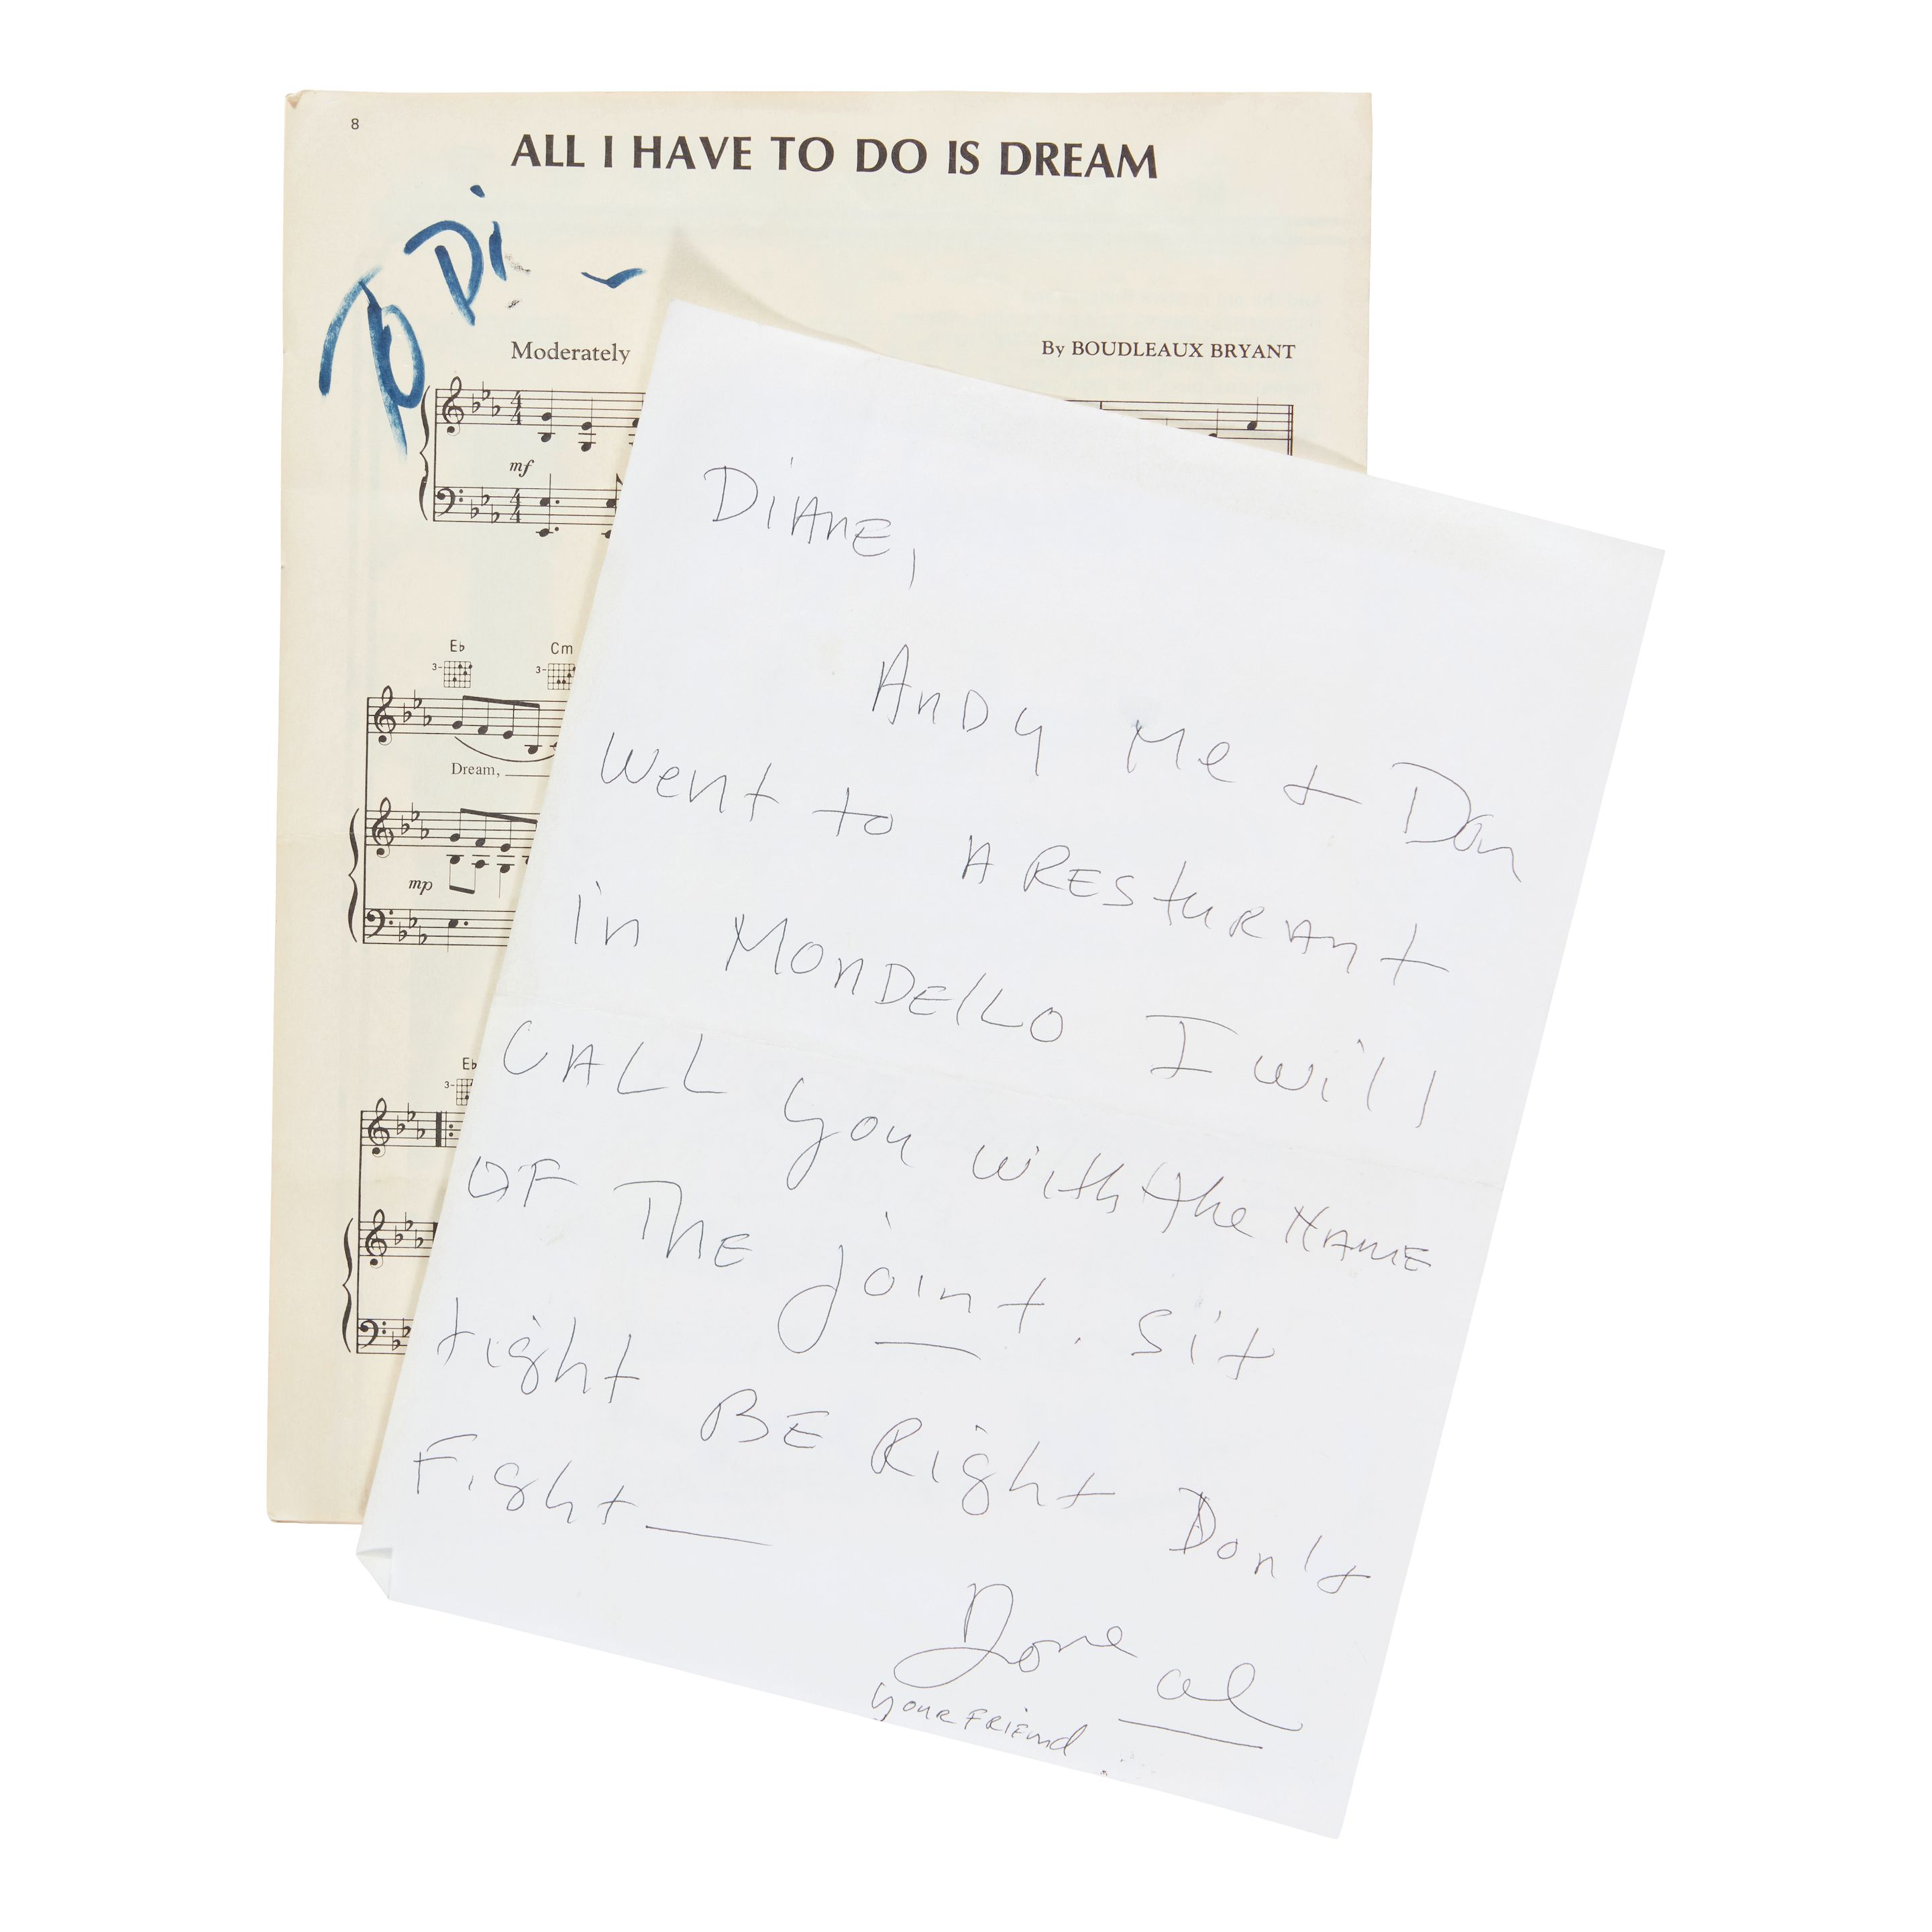 8
ALL I HAVE TO DO IS DREAM
To Di
Moderately
By BOUDLEAUX BRYANT
mf
E♭ Cm
3- 3-
Dream,
mp
E♭
3-
DiAnE,
AnDy Me + Dan
Went to A REStuRAnt
in MonDElLO I will
CALL you with the NAME
OF THE joint. Sit
tight BE Right Don't
Fight
Love al
youR FRiEnd